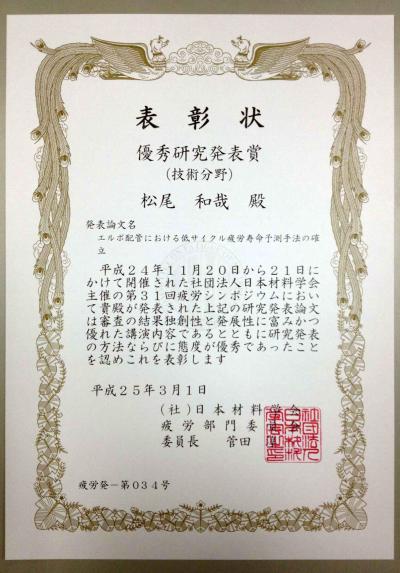 表彰状
優秀研究発表賞
(技術分野)
松尾 和哉 殿
発表論文名
エルボ配管における低サイクル疲労寿命予測手法の確
立
平成24年11月20日から21日に
かけて開催された社団法人日本材料学会
主催の第31回疲労シンポジウムにおい
て貴殿が発表された上記の発表論文
は審査の結果独創性と発展性に富みかつ
優れた講演内容であるとともに研究発表
の方法ならびに態度が優秀であったこと
を認めこれを表彰します
平成25年3月1日
(社)日本材料学会
疲労部門委員会
委員長 菅田
疲労発－第034号